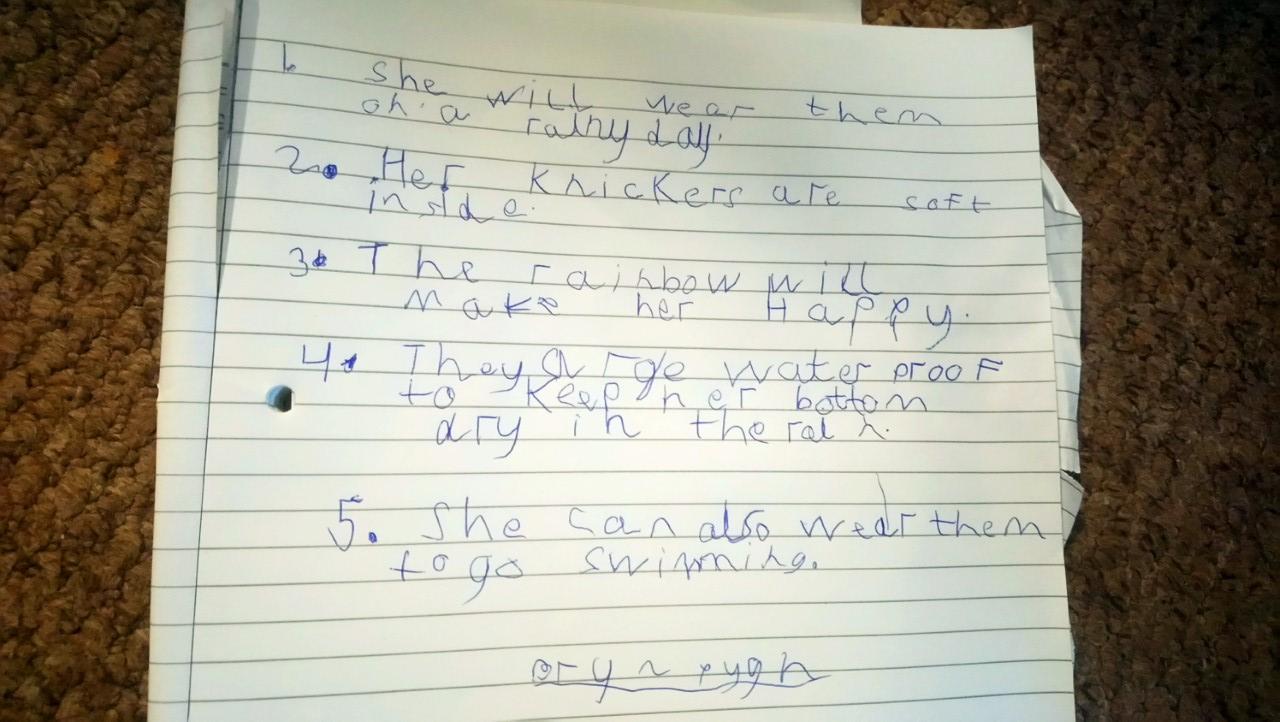 1. She will wear them
on a rainy day.
2. Her knickers are soft
inside.
3. The rainbow will
make her Happy.
4. They are waterproof
to keep her bottom
dry in the rain.
5. She can also wear them
to go swimming.